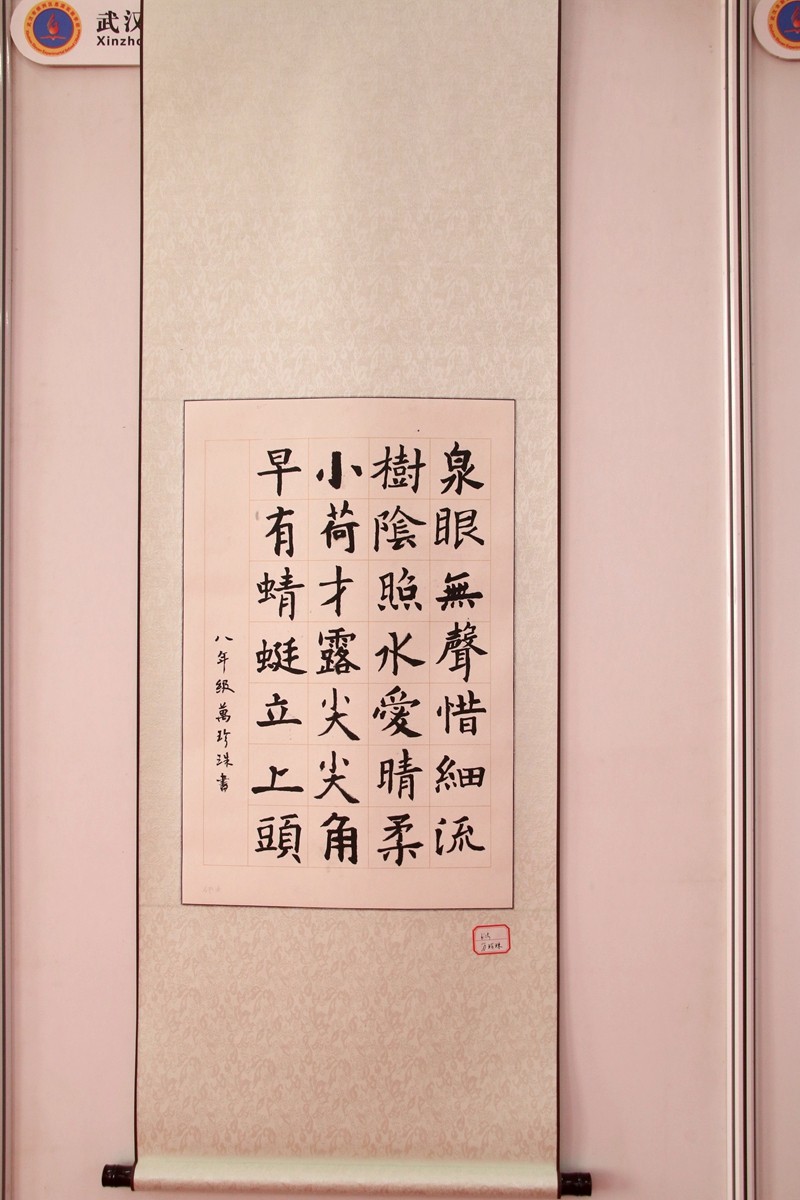 武汉
Xinzho
泉眼無聲惜細流
樹陰照水愛晴柔
小荷才露尖尖角
早有蜻蜓立上頭
八年級萬珍珠書